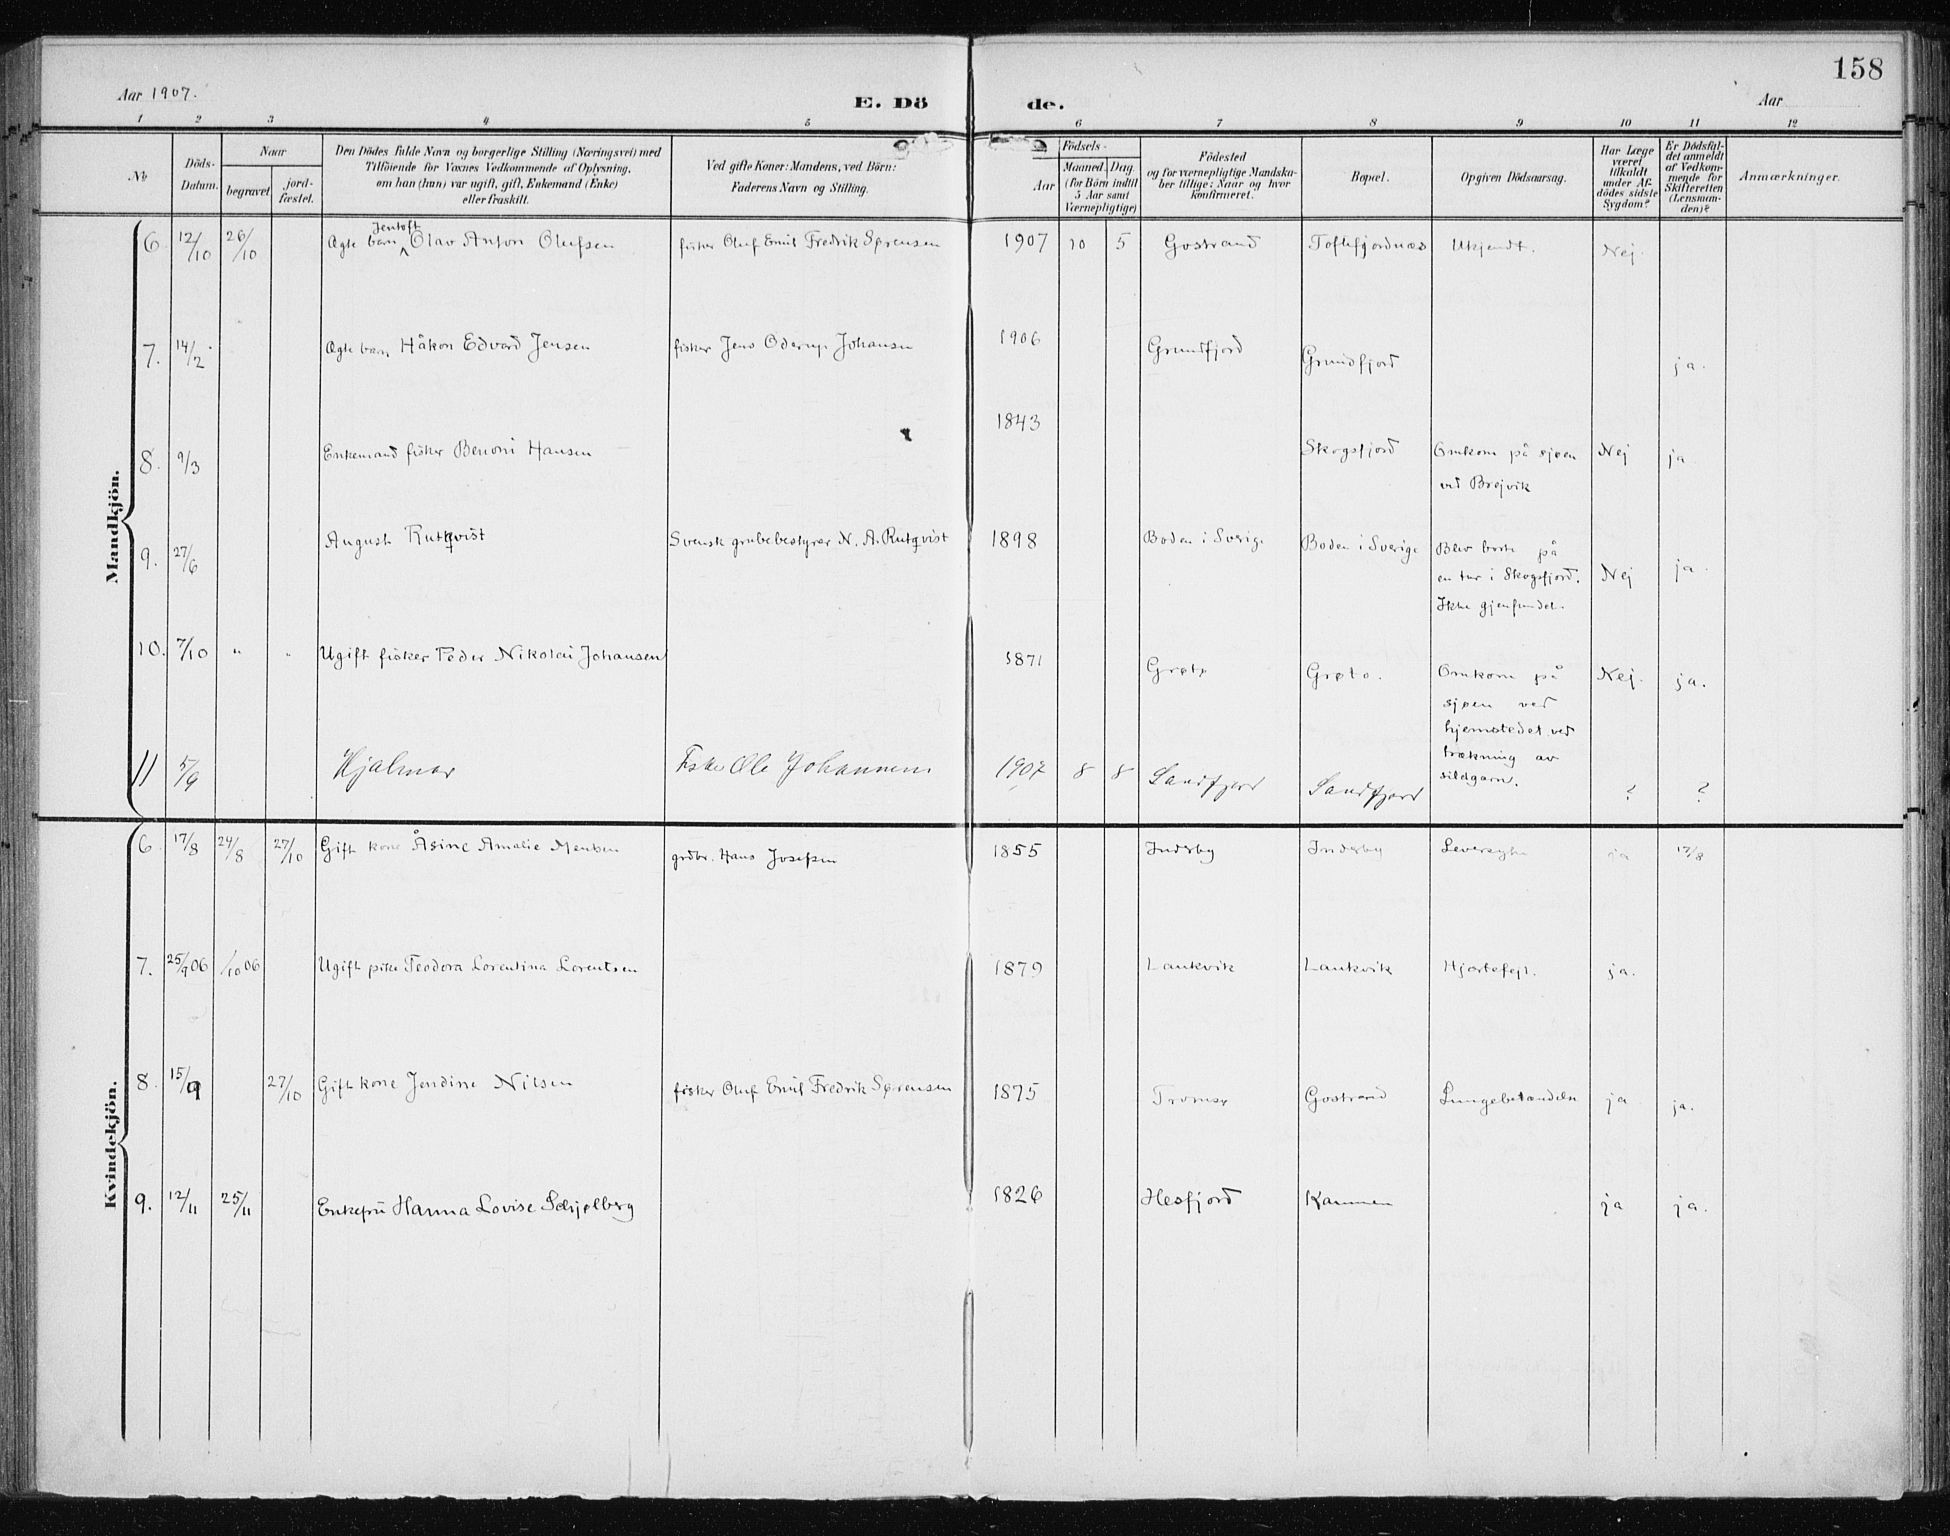 158
Aar 1907.
E. Dö de.
Aar
1 2 3 4 5 6 7 8 9 10 11 12
№
Döds-Datum.
Naar
begravet
jord-fæstet.
Den Dödes fulde Navn og borgerlige Stilling (Næringsvei) med
Tilföiende for Voxnes Vedkommende af Oplysning.
om han (hun) var ugift, gift, Enkemand (Enke)
eller fraskilt.
Ved gifte Koner: Mandens, ved Börn:
Faderens Navn og Stilling.
Födsels-
Aar
Maaned. Dag
(for Börn indtil
5 Aar samt
Værnepligtige)
Födested
og for værnepligtige Mandska-
ber tillige: Naar og hvor
konfirmeret.
Bopæl.
Opgiven Dödsaarsag.
Har Læge
været
tilkaldt
under Af-
dödes sidste
Sygdom?
Er Dödsfal-
det anmeldt
af Vedkom-
mende for
Skifteretten
(Lensman-
den)?
Anmærkninger.
Mandkjön.
6. 12/10 26/10 Ægte barn Jentoft Olav Anton Olufsen fisker Oluf Emil Fredrik Sørensen 1907 10 5 Gostrand Toftefjordnæs Ukjendt. Nej.
7. 14/2 Ægte barn Håkon Edvard Jensen fisker Jens Oderup Johansen 1906 Grundfjord Grundfjord ja.
8. 9/3 Enkemand fisker Benoni Hansen 1843 Skogsfjord Omkom på sjøen Nej ja
ved Brejvik
9. 27/6 August Rutqvist Svensk grubebestyrer N. A. Rutqvist 1898 Boden i Sverige Boden i Sverige Blev borte på
en tur i Skogsfjord. Nej ja.
Ikke gjenfundet.
10. 7/10 " " Ugift fisker Peder Nikolai Johansen 1871 Grøtø Grøtø. Omkom på Nej. ja.
sjøen ved
hjemstedet ved
trækning av
sildgarn.
11 5/9 Hjalmar Fisker Ole Johannesen 1907 8 8 Sandfjord Sandfjord ? ?
Kvindekjön.
6. 17/8 24/8 27/10 Gift kone Åsine Amalie grdbr. Hans Josefsen 1855 Inderby Inderby Leversyke ja 17/8
7. 25/9 06 /10 06 Ugift pike Teodora Lorentina Lorentsen 1879 Lankvik Lankvik Hjertefejl. ja.
8. 15/9 27/10 Gift kone Jendine Nilsen fisker Oluf Emil Fredrik Sørensen 1875 Tromsø Gostrand Lungebetændelse ja ja.
9. 12/11 25/11 Enkefru Hanna Lovise Schjelberg 1826 Hesfjord Kammen ja ja.